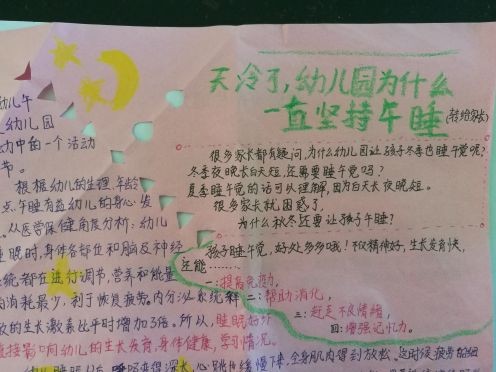 天冷了,幼儿园为什么
一直坚持午睡(转给家长)
很多家长都有疑问,为什么幼儿园让孩子冬季也睡午觉呢?
冬季夜晚长白天短,还需要睡午觉吗?
夏季睡午觉的话可以理解,因为白天长夜晚短。
很多家长就困惑了,
为什么秋冬还要让孩子午睡?
孩子睡午觉,好处多多哦!不仅精神好,生长发育快,
还能……
一:提高免疫力,
二:帮助消化,
三:赶走不良情绪,
四:增强记忆力。
幼儿午
幼儿园
动中的一个活动
节。
根据幼儿的生理、年龄
点,午睡有益幼儿的身心发
从医学保健角度分析:幼儿
睡眠时,身体各部位和脑及神经
统都在进行调节,营养和能量
的消耗最少,利于恢复疲劳。内分泌系统释
放的生长激素比平时增加3倍。所以,睡眠好坏
直接影响幼儿的生长发育,身体健康,学习情况。